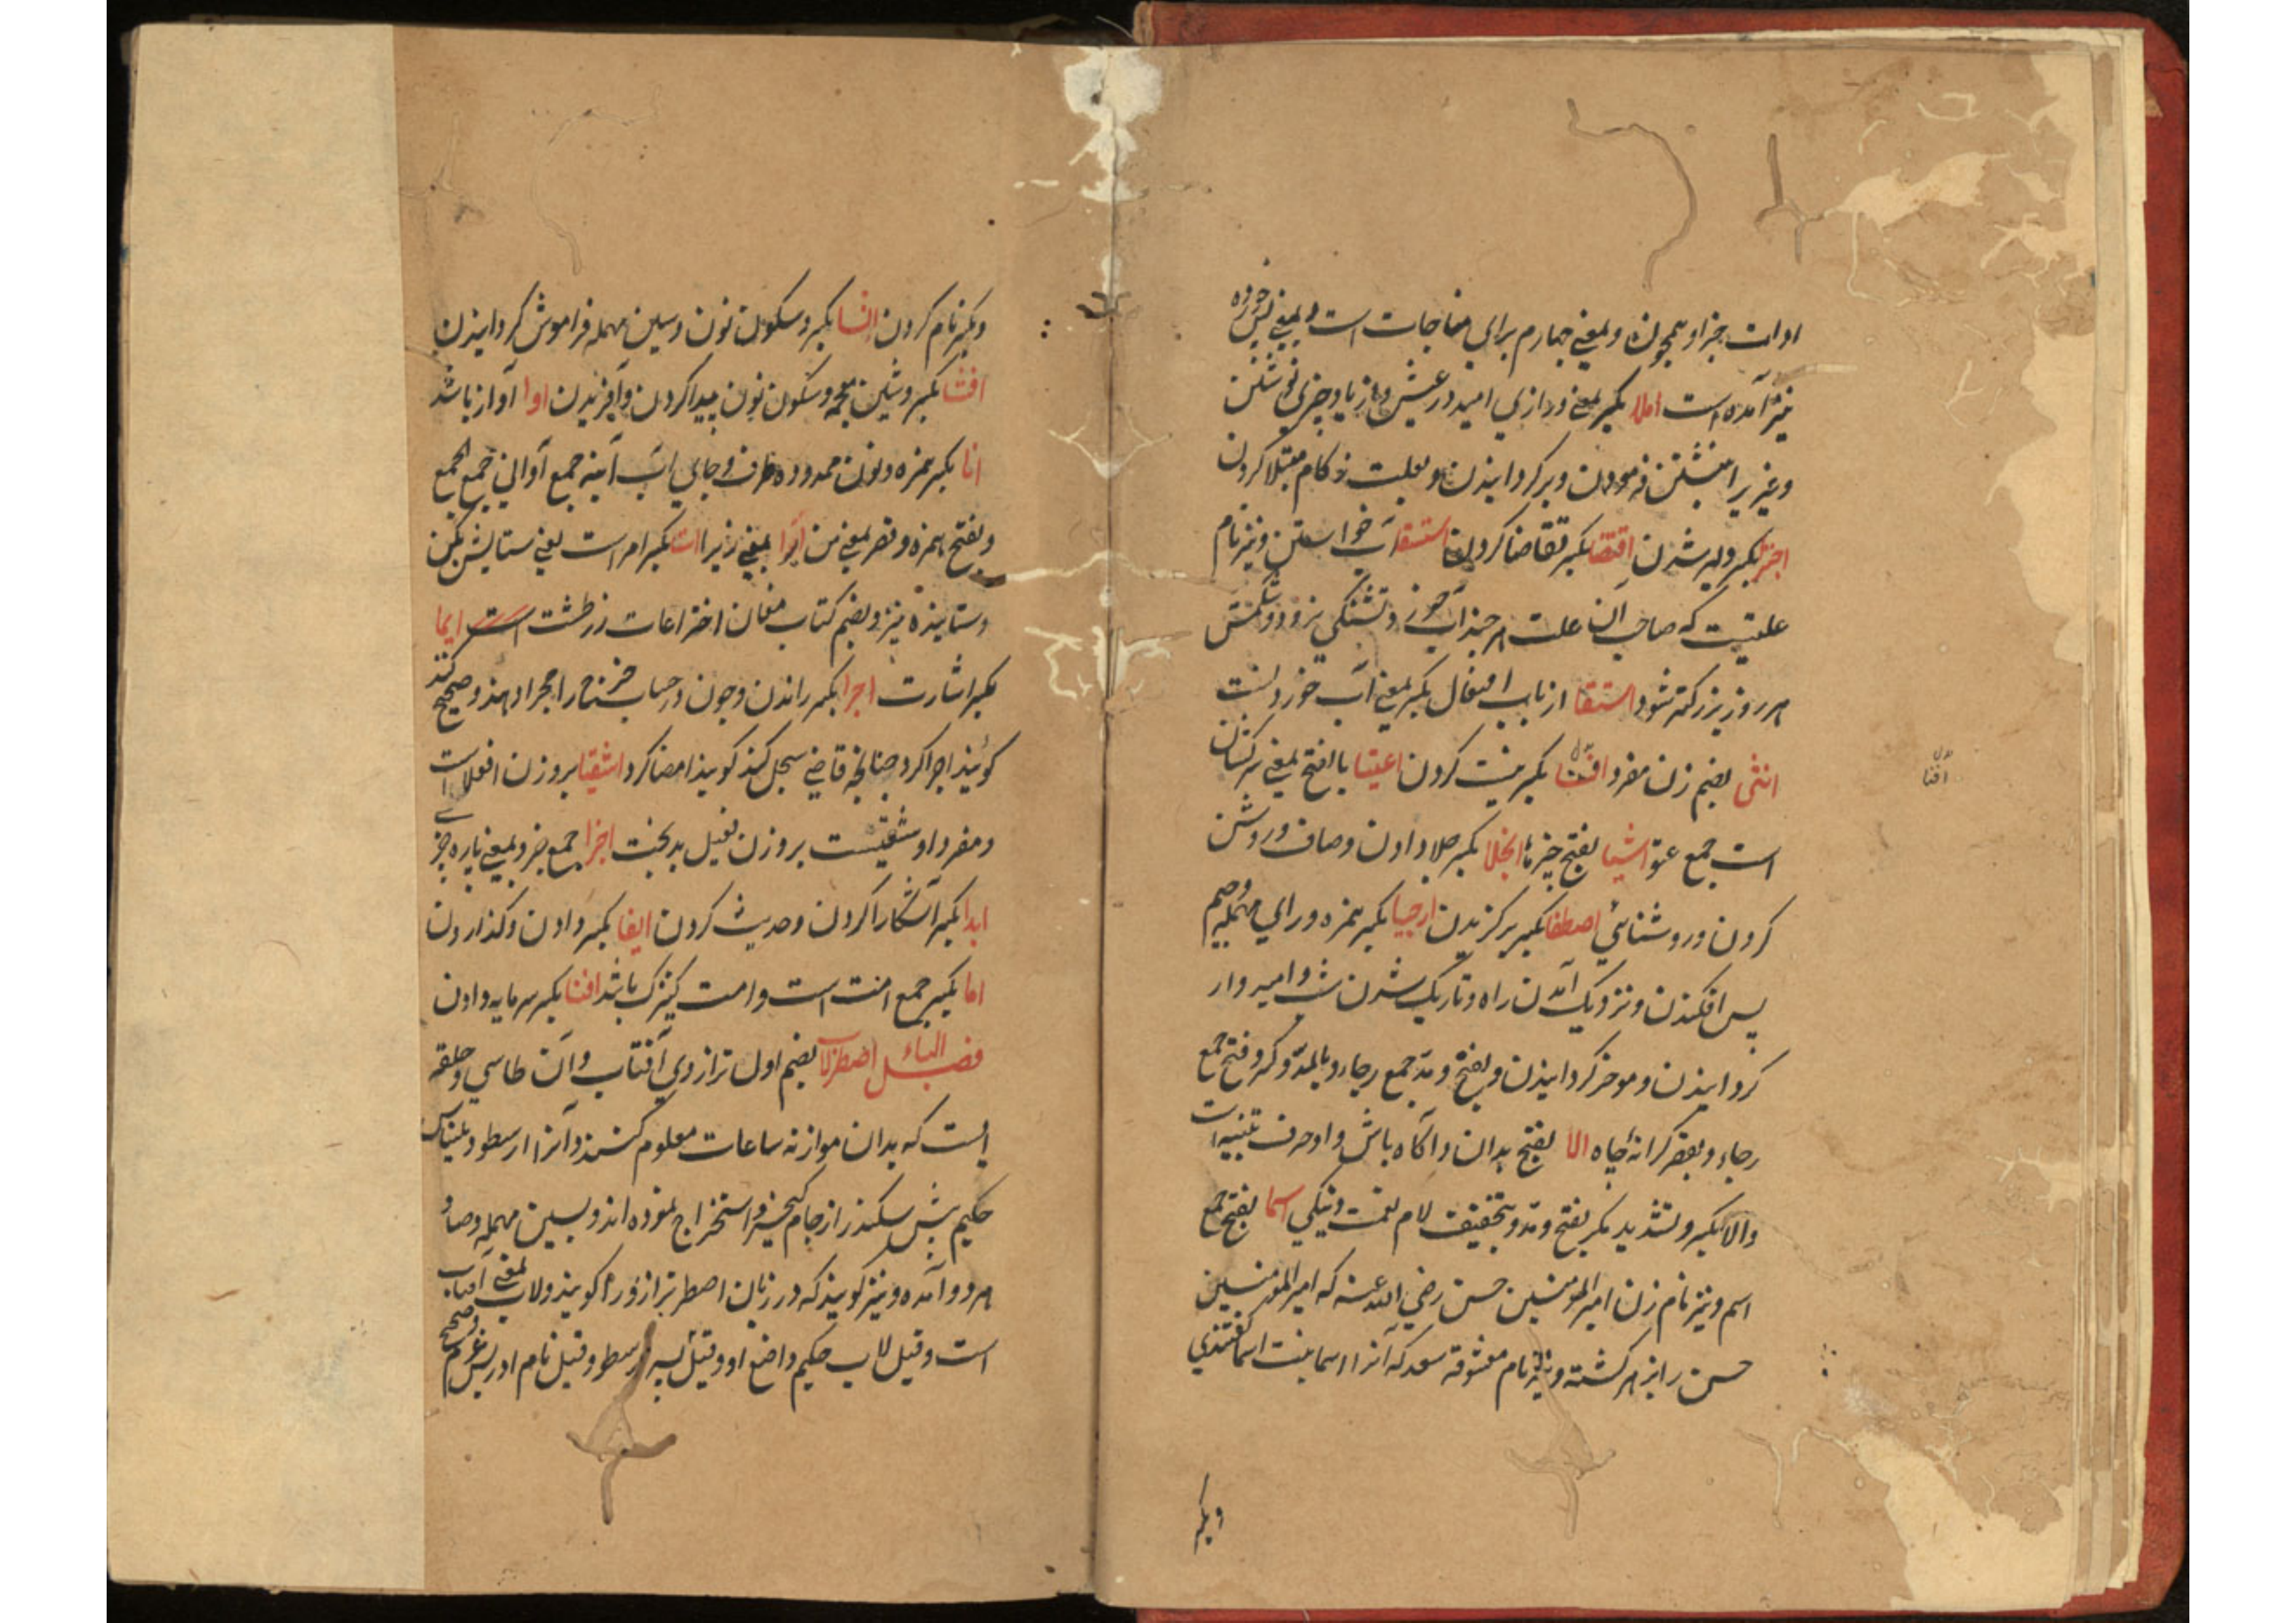 ادات جزا و همچون و بمعنی چهارم برای مفاجات است و بمعنی پس
نیز آمده است املا بکسر بمعنی درازی امید در عیش و از یاد چیزی نوشتن
و غیر را نبشتن فرمودن و بر کردانیدن و بعلت زکام مبتلا کردن
بکسر دلیر شدن اقتضا بکسر تقاضا کردن استسقا آب خواستن و نیز نام
علتیست که صاحب آن علت هر چند آب خورد تشنکی نرود و شکمش
هر روز بزرکتر شود استقا از باب افتعال بکسر بمعنی آب خوردنست
انثی بضم زن مفرد بکسر نیست کردن اعیتا بالفتح بمعنی سرکشان
است جمع اشیا بفتح چیزها انجلا بکسر جلا دادن و صاف و روشن
کردن و روشنائی اصطفا بکسر برکزیدن ارجیا بکسر همزه و رای مهمله و جیم
پس افکندن و نزدیک آمدن راه و تاریک شدن شب و امیدوار
کردانیدن و موخر کردانیدن و بفتح و مد جمع رجاء و بالمد و کسر و فتح جمع
رجاء و بقصر کرانه چاه الا بفتح بدان و آکاه باش و او حرف تنبیه است
و الا بکسر و تشدید مکر بفتح و مد و بتخفیف لام نعمت و نیکی اسما بفتح جمع
اسم و نیز نام زن امیر المومنین حسن رضی الله عنه که امیر المومنین
حسن را بزهر کشته و نیز نام معشوقه سعد که آنرا اسما بنت اسما کفتندی
و بکسر
و بکسر نام کردن انسا بکسر و سکون نون و سین مهمله فراموش کردانیدن
انشا بکسر و شین معجمه و سکون نون پیدا کردن و آفریدن اوا آواز باشد
انا بکسر همزه و نون ممدوده ظرف و جای آب آنیه جمع اوانی جمع الجمع
و بفتح همزه و قصر بمعنی من ایرا بمعنی زیرا است بکسر امر است یعنی ستایش بکن
و ستاینده نیز و بضم کتاب مغان اختراعات زرطشت است ایما
بکسر اشارت اجرا بکسر راندن و چون در حساب خرج را مجرا دهند و صحیح کنند
کویند اجرا کرد چنانچه قاضی سجل کند کویند امضا کرد اشقیا بر وزن افعلا است
و مفرد او شقیست بر وزن فعیل بدبخت اجزا جمع جزو بمعنی پاره چیزی
ابدا بکسر آشکارا کردن و حدیث کردن ایفا بکسر دادن و کذاردن
اما بکسر جمع امت است و امت کنیزک باشد اقنا بکسر سرمایه دادن
فصل الباء اصطرلاب بضم اول ترازوی آفتاب و آن طاسی و حلقه
ایست که بدان موازنه ساعات معلوم کنند و آنرا ارسطو و بلیناس
حکیم پیش سکندر از جام کیخسرو استخراج نموده اند و بسین مهمله و صاد
هر دو آمده و نیز کویند که در زبان اصطر ترازو را کویند و لاب بمعنی آفتاب
است و قیل لاب حکیم واضع او و قیل پسر ارسطو و قیل نام ادریس